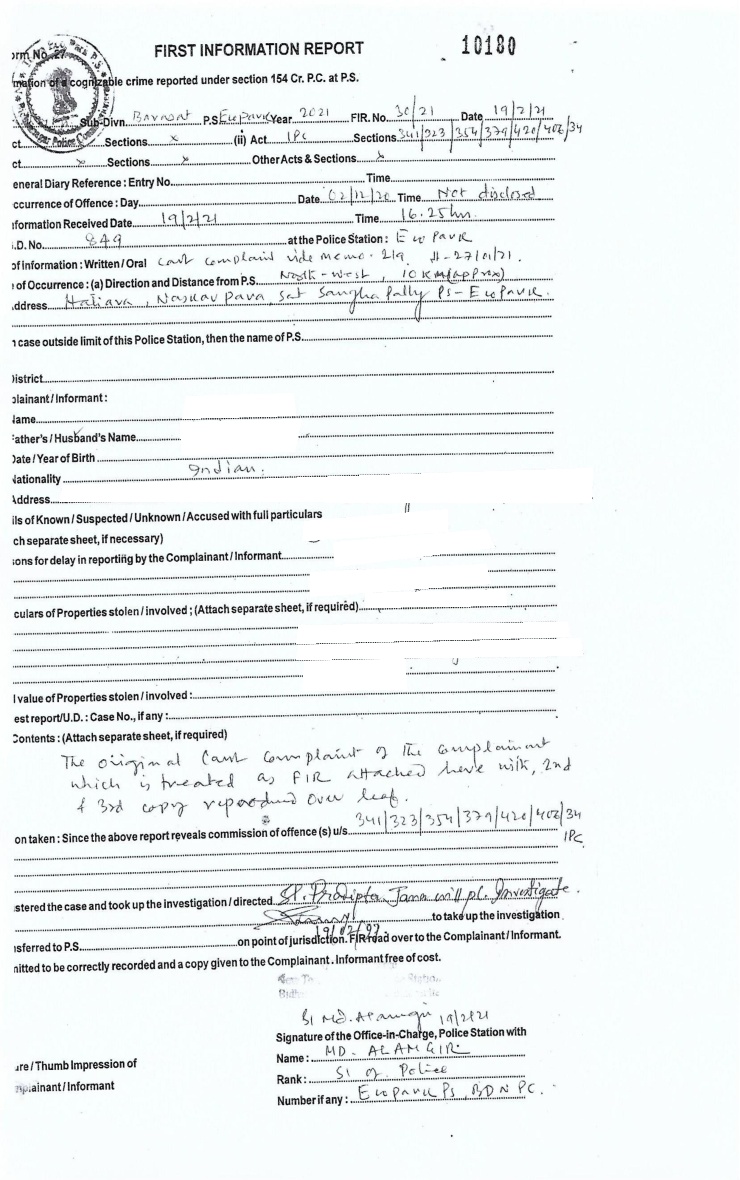 FIRST INFORMATION REPORT 10180
orm No. 27
mation of a cognizable crime reported under section 154 Cr. P.C. at P.S.
Sub-Divn. Barasat P.S Ecopark Year 2021 FIR. No. 30/21 Date 19/2/21
ct Sections x (ii) Act IPC Sections 341/323/354/379/420/406/34
ct x Sections x Other Acts & Sections x
eneral Diary Reference : Entry No. Time
ccurrence of Offence : Day Date 02/12/20 Time Not disclosed
nformation Received Date 19/2/21 Time 16.25 hrs
.D. No. 849 at the Police Station : Eco Park
of Information : Written / Oral Court complaint vide memo - 219 dt - 27/01/21.
of Occurrence : (a) Direction and Distance from P.S. North - West, 10 KM (approx)
ddress Hatiara, Naskar para, Sat Sangha Pally PS - Ecopark.
n case outside limit of this Police Station, then the name of P.S.
istrict
plainant / Informant :
lame
ather's / Husband's Name
Date / Year of Birth
Nationality Indian.
Address
ils of Known / Suspected / Unknown / Accused with full particulars
ch separate sheet, if necessary)
ons for delay in reporting by the Complainant / Informant
culars of Properties stolen / involved ; (Attach separate sheet, if required)
l value of Properties stolen / involved :
est report/U.D. : Case No., if any :
Contents : (Attach separate sheet, if required)
The original Court complaint of the complainant
which is treated as FIR attached here with, 2nd
& 3rd copy reproduced over leaf.
on taken : Since the above report reveals commission of offence (s) u/s 341/323/354/379/420/406/34
IPC
stered the case and took up the investigation / directed SI. Pradipta Jana will pl. Investigate.
to take up the investigation
nsferred to P.S. on point of jurisdiction. FIR read over to the Complainant / Informant.
nitted to be correctly recorded and a copy given to the Complainant. Informant free of cost.
SI Md. Alamgir 19/2/21
Signature of the Office-in-Charge, Police Station with
Name : MD. ALAMGIR
ure / Thumb Impression of
Rank : SI of Police
plainant / Informant
Number if any : Ecopark PS, BDN PC.